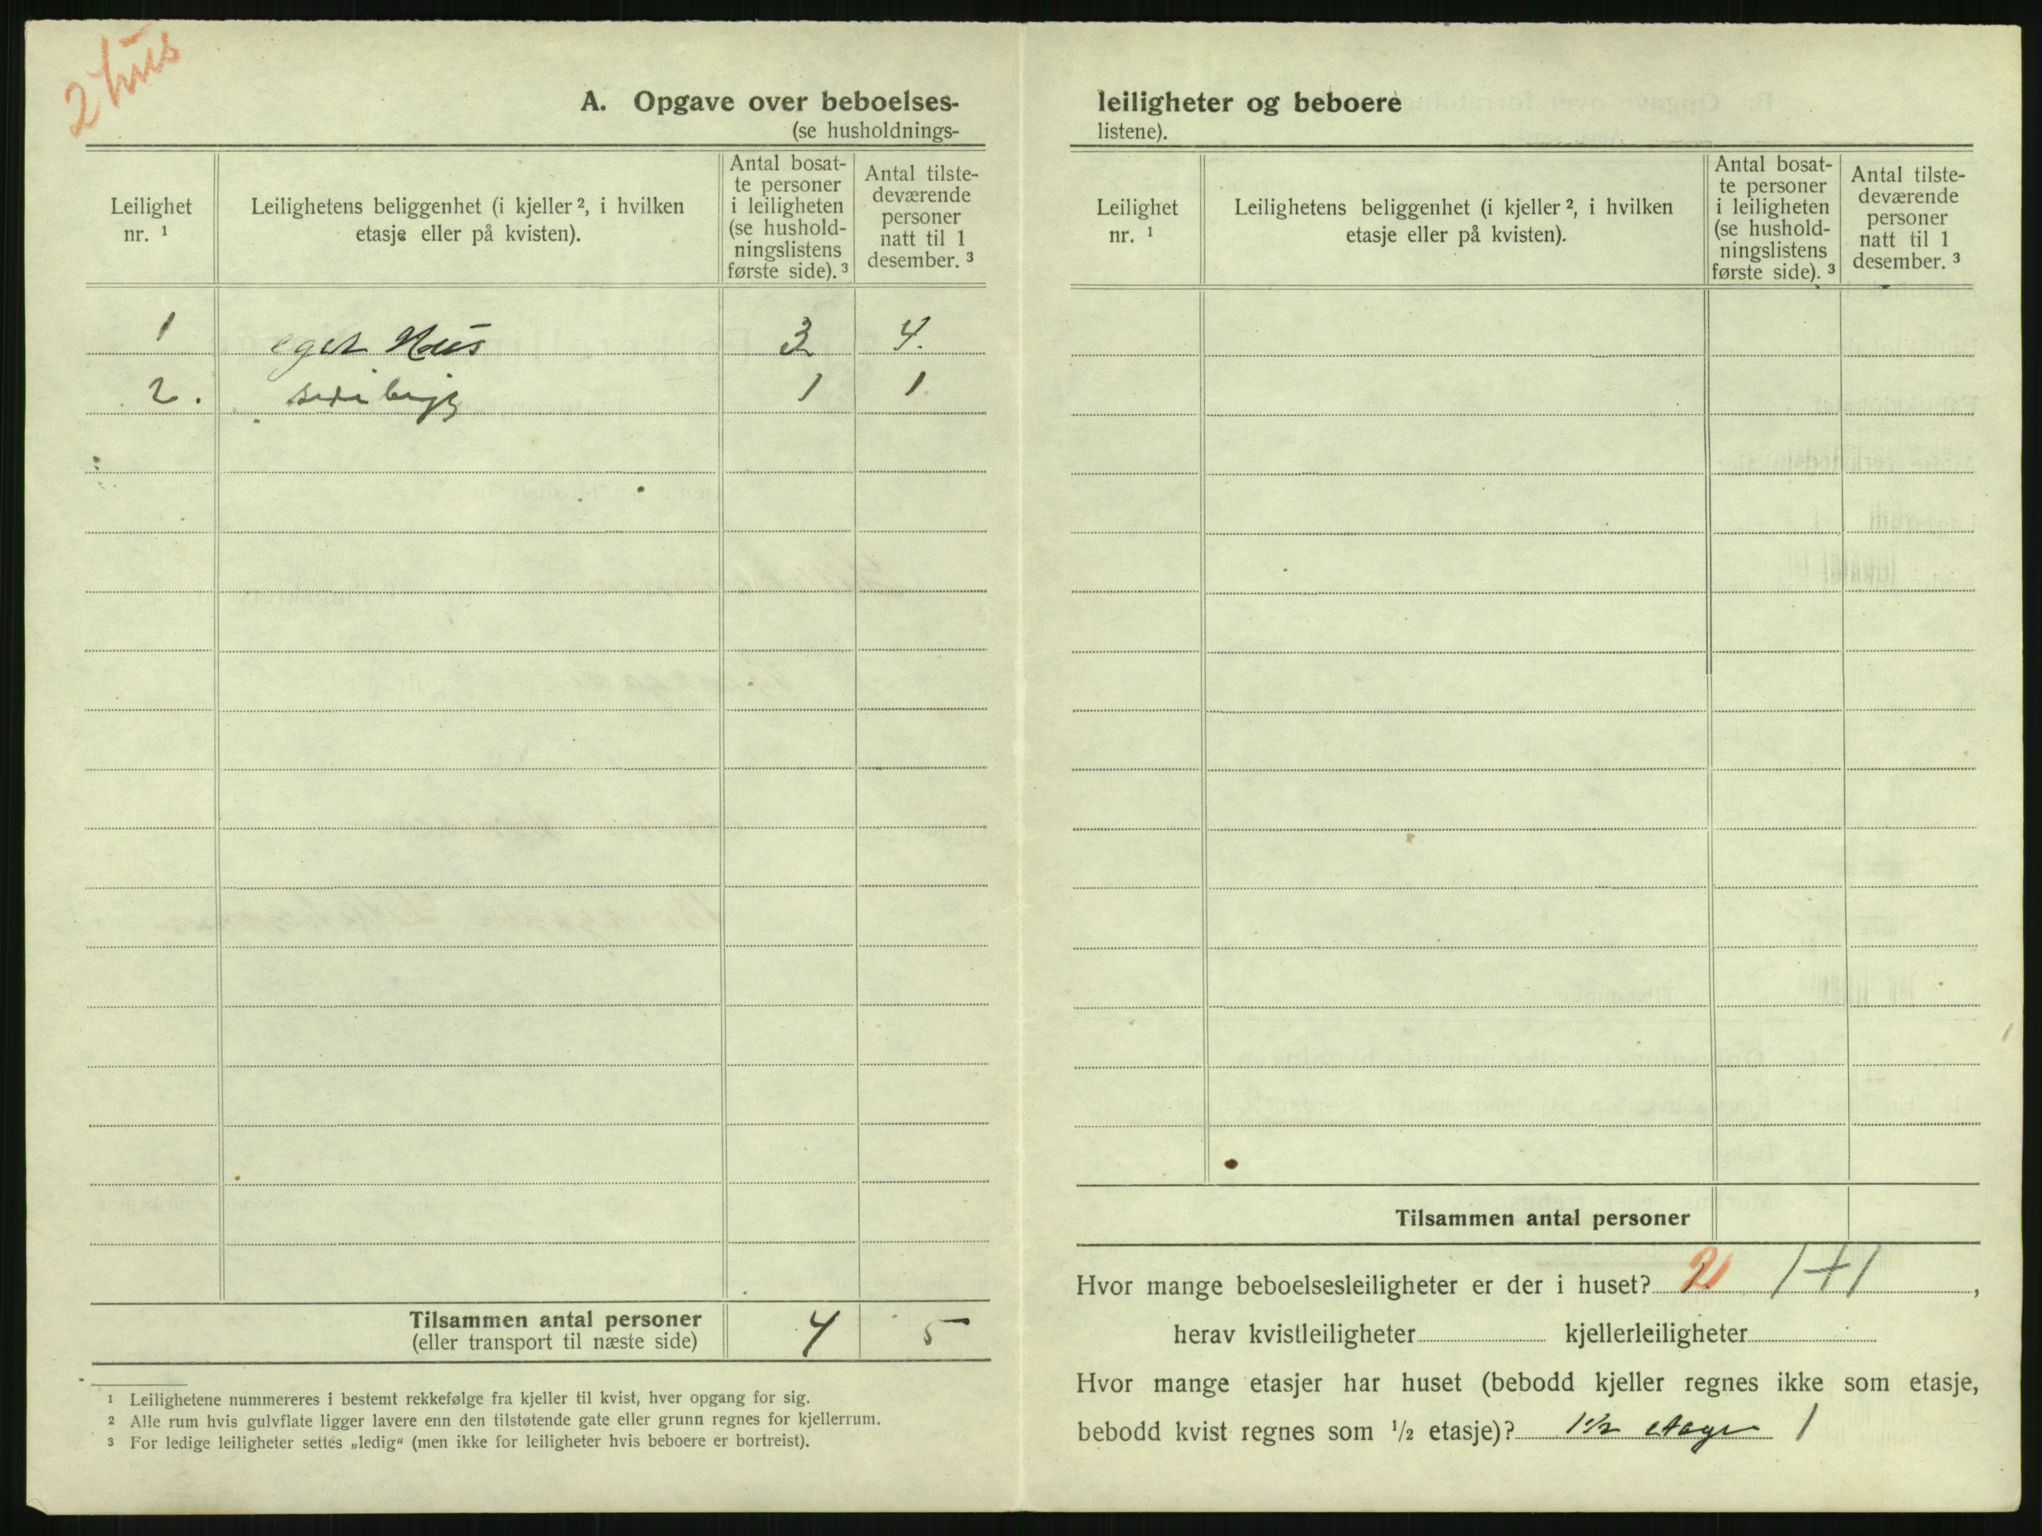 2 hus
A. Opgave over beboelses-
(se husholdnings-
Leilighet nr. ¹
Leilighetens beliggenhet (i kjeller ², i hvilken etasje eller på kvisten).
Antal bosat-
te personer
i leiligheten
(se hushold-
ningslistens
første side). ³
Antal tilste-
deværende
personer
natt til 1
desember. ³
1 eget Hus 3 4.
2. sidebygg 1 1
Tilsammen antal personer 4 5
(eller transport til næste side)
¹ Leilighetene nummereres i bestemt rekkefølge fra kjeller til kvist, hver opgang for sig.
² Alle rum hvis gulvflate ligger lavere enn den tilstøtende gate eller grunn regnes for kjellerrum.
³ For ledige leiligheter settes „ledig“ (men ikke for leiligheter hvis beboere er bortreist).
leiligheter og beboere
listene).
Leilighet nr. ¹
Leilighetens beliggenhet (i kjeller ², i hvilken etasje eller på kvisten).
Antal bosat-
te personer
i leiligheten
(se hushold-
ningslistens
første side). ³
Antal tilste-
deværende
personer
natt til 1
desember. ³
Tilsammen antal personer
Hvor mange beboelsesleiligheter er der i huset? 2 1+1,
herav kvistleiligheter kjellerleiligheter
Hvor mange etasjer har huset (bebodd kjeller regnes ikke som etasje,
bebodd kvist regnes som ½ etasje)? 1½ etage 1